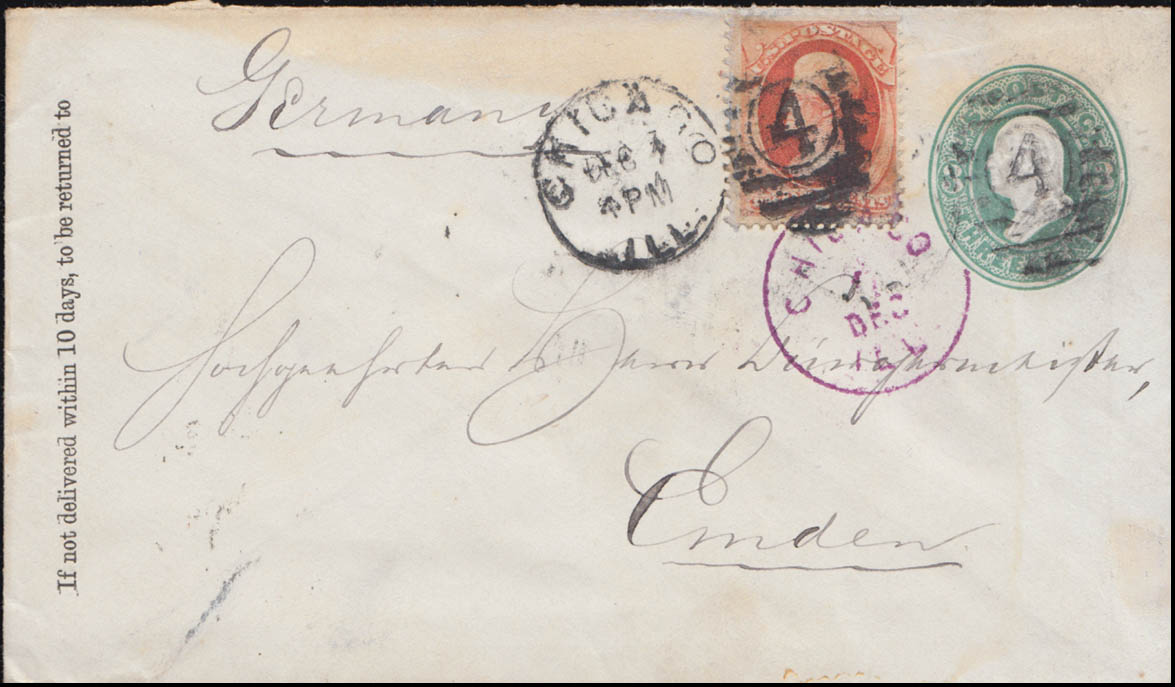 If not delivered within 10 days, to be returned to
Germany
CHICAGO
DEC
4 PM
ILL.
U.S. POSTAGE
4
4
CHICAGO
DEC
ILL
Hochgeehrter Herr Bürgermeister,
Emden